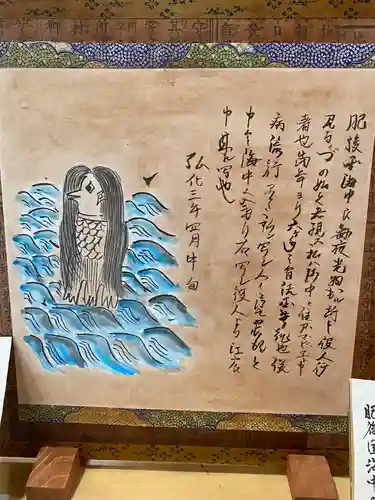 肥後国海中え毎夜光物出ル所之役人行
見るニづの如く者現ス私ハ海中ニ住アマビヱト申
者也当年より六ヶ年之間諸国豊作也併
病流行早々私写シ人々ニ見せ候得と
申て海中へ入けり右写シ役人より江戸え
申来ル写也
弘化三年四月中旬
肥後国海中